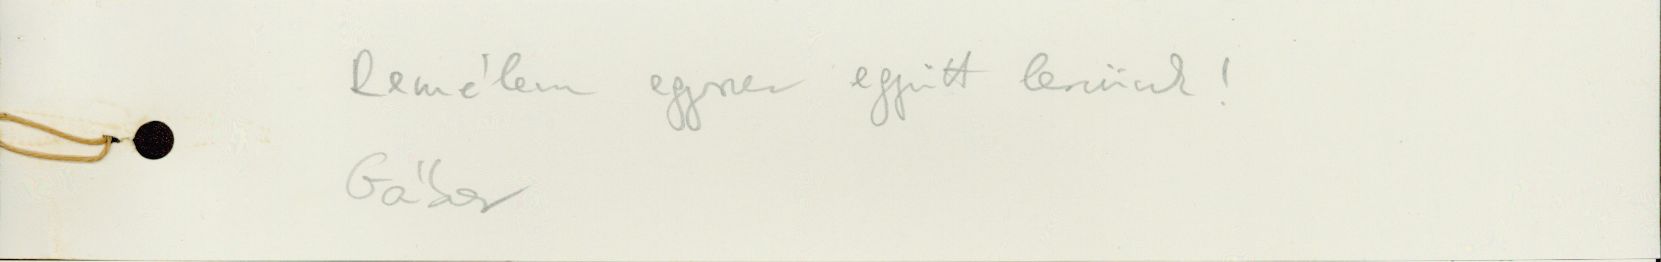 Remélem egyszer együtt leszünk!
Gábor